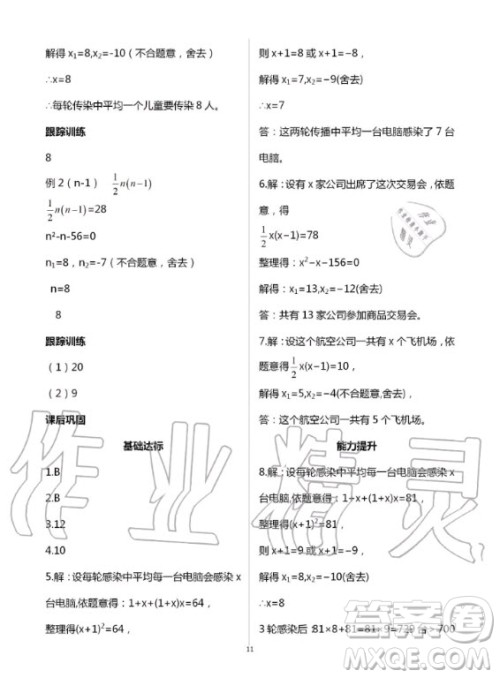 解得 x₁=8,x₂=-10（不合题意,舍去）
∴x=8
∴每轮传染中平均一个儿童要传染 8 人。
跟踪训练
8
例 2（n-1） 1/2 n(n−1)
1/2 n(n−1)=28
n²-n-56=0
n₁=8，n₂=-7（不合题意，舍去）
n=8
8
跟踪训练
（1）20
（2）9
课后巩固
基础达标
1.B
2.B
3.12
4.10
5.解：设每轮感染中平均每一台电脑会感染 x
台电脑，依题意得：1+x+(1+x)x=64，
整理得(x+1)²=64，
则 x+1=8 或 x+1=−8，
解得 x₁=7,x₂=−9(舍去)
∴x=7
答：这两轮传播中平均一台电脑感染了 7 台
电脑。
6.解：设有 x 家公司出席了这次交易会，依题
意，得
1/2 x(x−1)=78
整理得：x²−x−156=0
解得：x₁=13,x₂=−12(舍去)
答：共有 13 家公司参加商品交易会。
7.解：设这个航空公司共有 x 个飞机场，依
题意得 1/2 x(x−1)=10，
解得：x₁=5,x₂=−4(不合题意,舍去)，
答：这个航空公司共有 5 个飞机场。
能力提升
8.解：设每轮感染中平均每一台电脑会感染 x
台电脑,依题意得：1+x+(1+x)x=81，
整理得(x+1)²=81，
则 x+1=9 或 x+1=−9，
解得 x₁=8,x₂=−10(舍去)
∴x=8
3 轮感染后：81×8+81=81×9=729 台＞700
11
作业精灵
答案圈
MXQE.COM